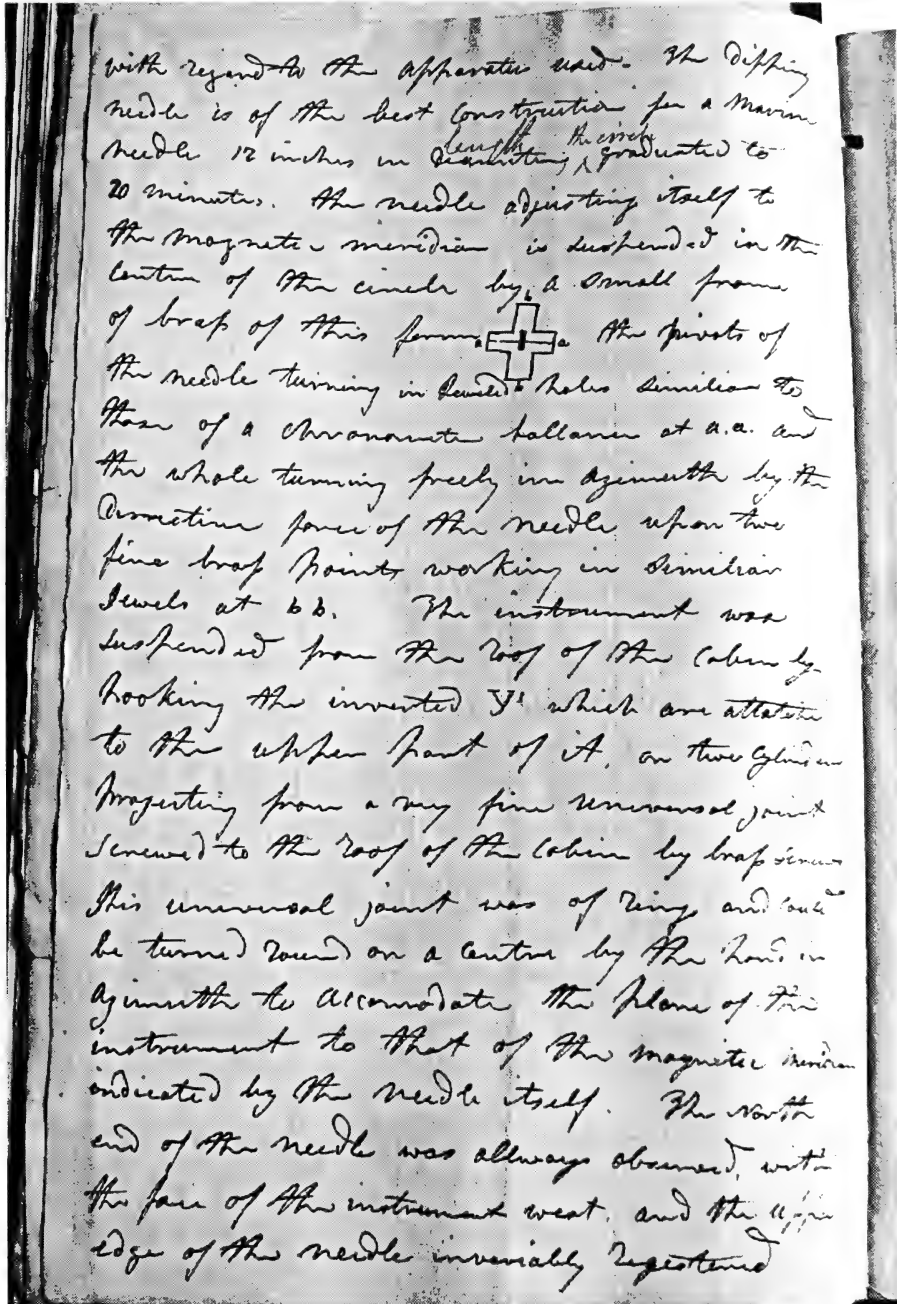 with regard to the apparatus used. The dipping
needle is of the best construction for a Marine
length the circle
needle 12 inches in graduated to
20 minutes. the needle adjusting itself to
the magnetic meridian is suspended in the
centre of the circle by a small frame
of brass of this form the pivots of
b
a a
b
the needle turning in Jeweled holes similiar to
those of a chronometer ballance at a.a. and
the whole turning freely in azimuth by the
Directive force of the needle upon two
fine brass points working in similiar
Jewels at bb. The instrument was
suspended from the roof of the cabin by
hooking the inverted Ys which are attatched
to the upper part of it, on two cylinders
Projecting from a very fine universal joint
screwed to the roof of the cabin by brass screws
this universal joint was of rings and could
be turned round on a centre by the hand in
azimuth to accomodate the plane of the
instrument to that of the magnetic meridian
indicated by the needle itself. The north
end of the needle was allways observed, with
the face of the instrument west, and the upper
edge of the needle invariably registered